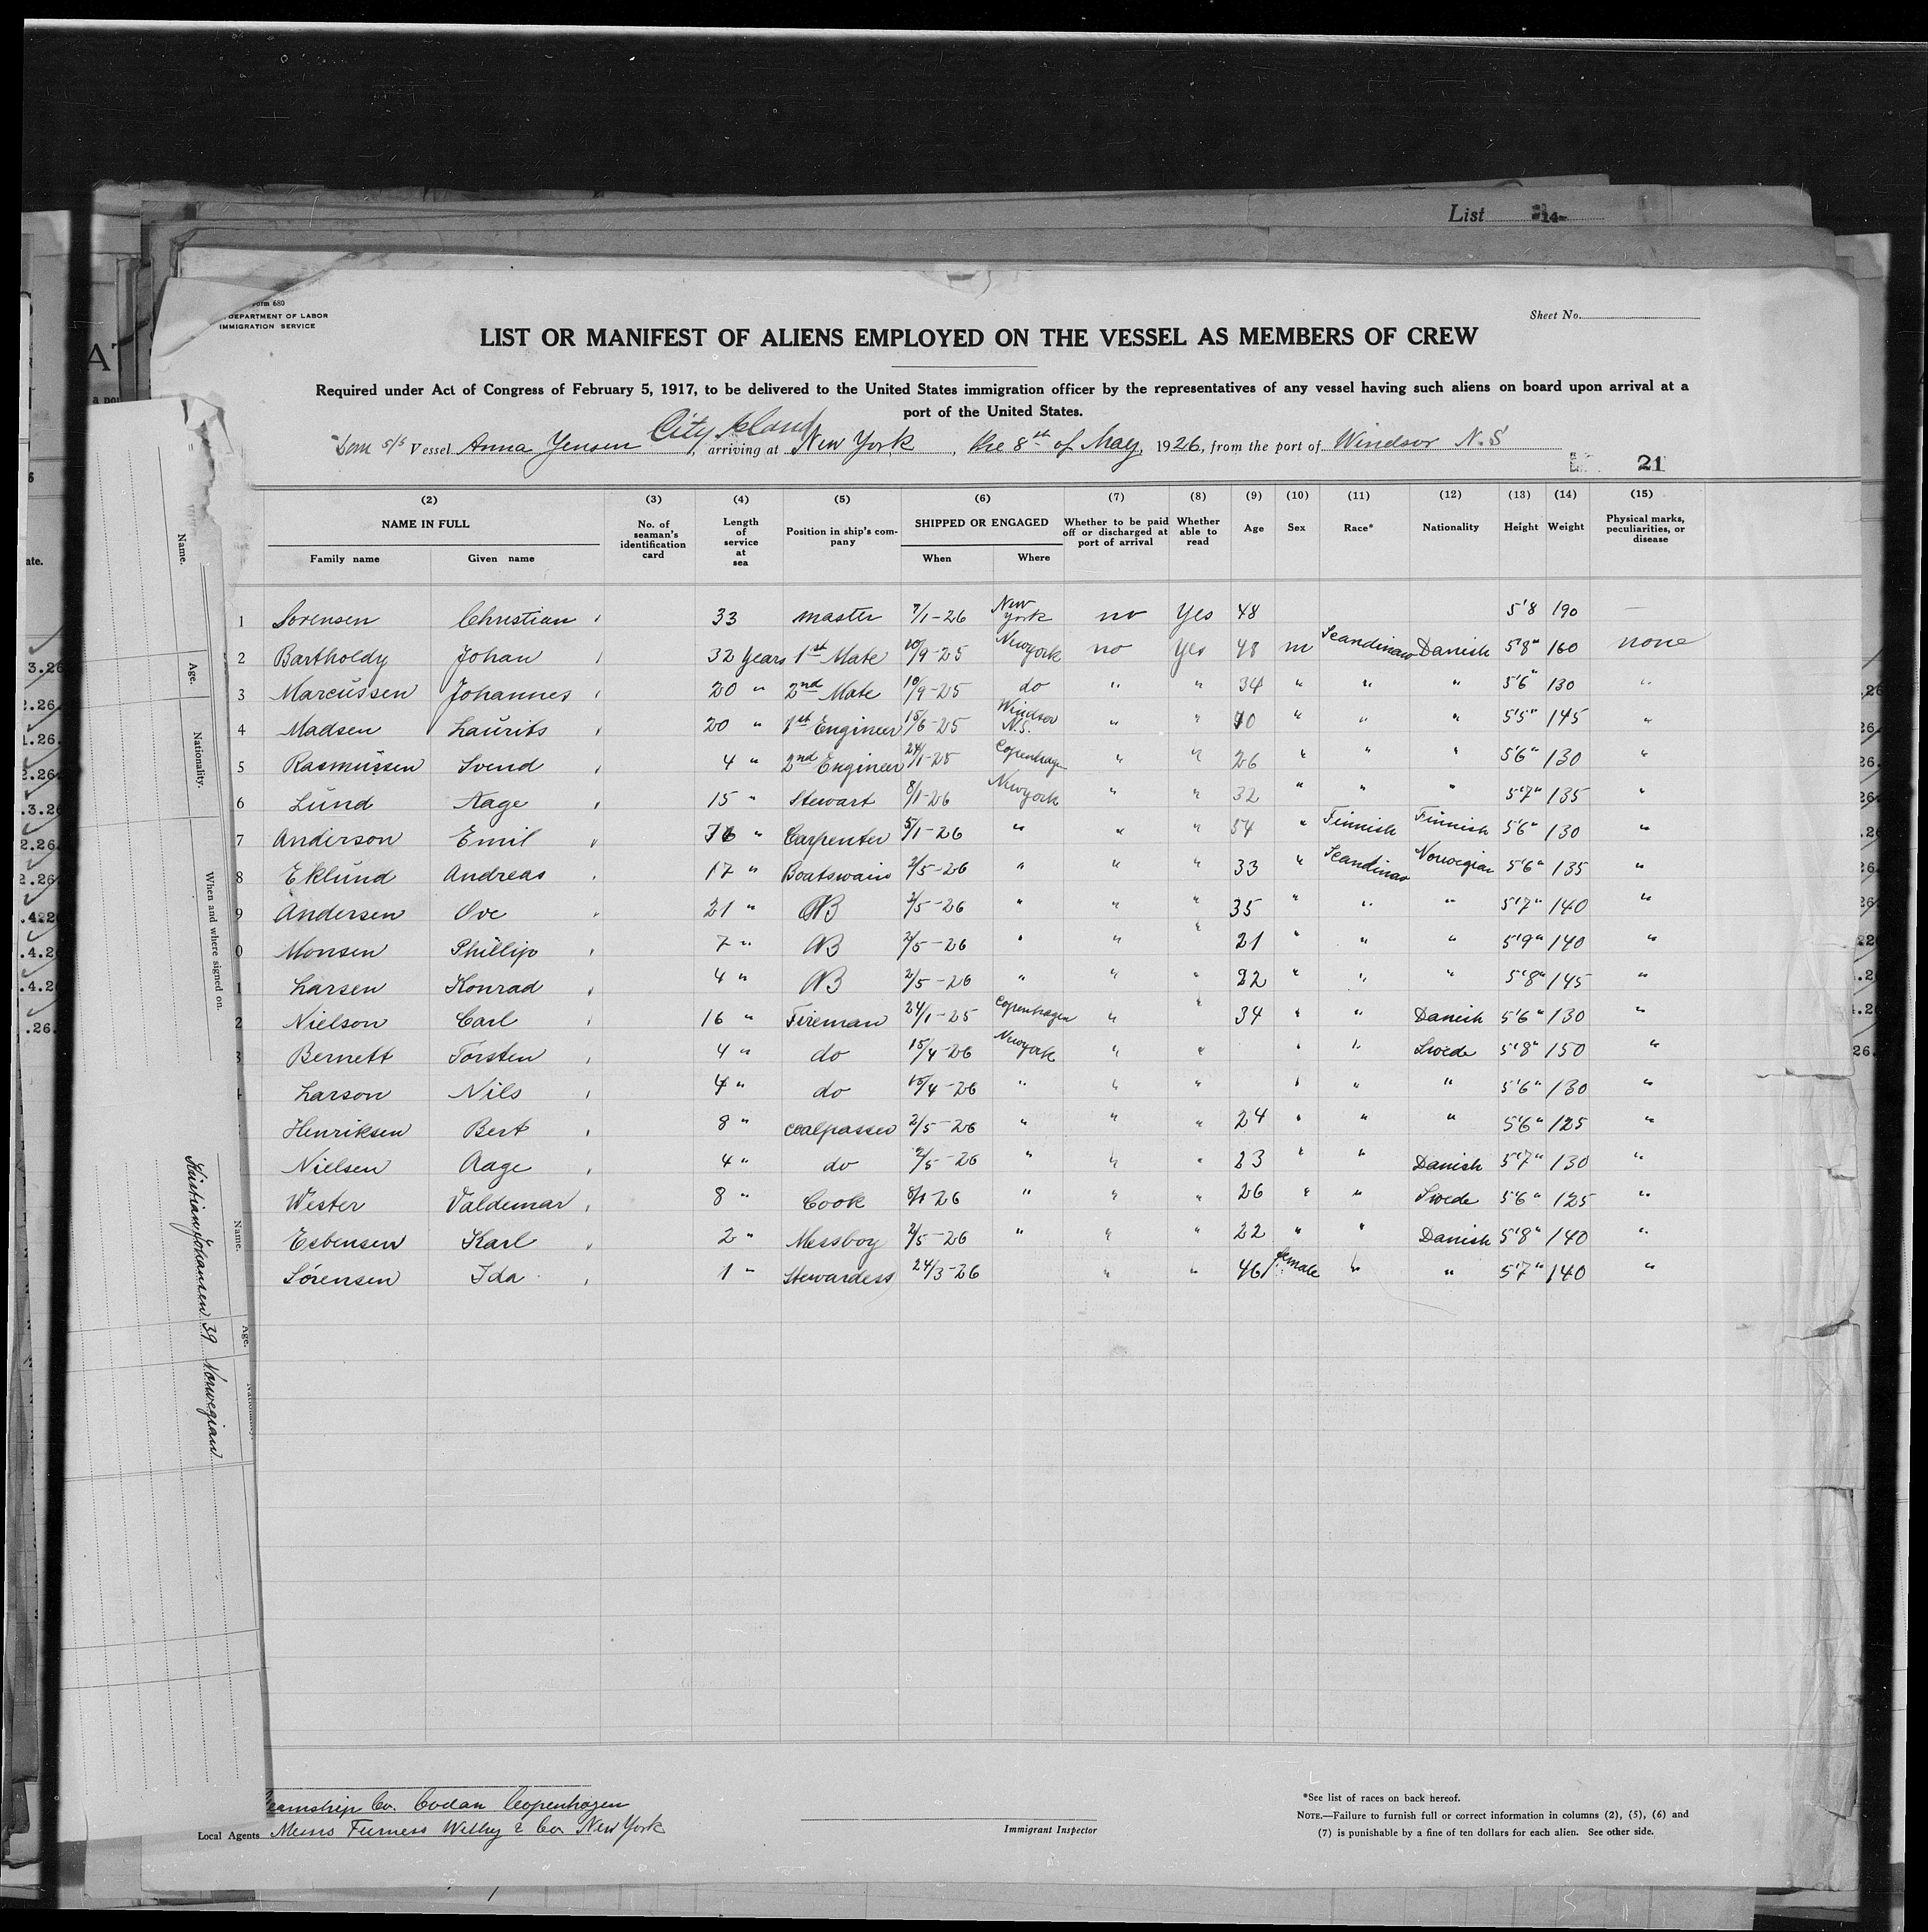 List 14
Form 680
DEPARTMENT OF LABOR
IMMIGRATION SERVICE
Sheet No.
LIST OR MANIFEST OF ALIENS EMPLOYED ON THE VESSEL AS MEMBERS OF CREW
Required under Act of Congress of February 5, 1917, to be delivered to the United States immigration officer by the representatives of any vessel having such aliens on board upon arrival at a
port of the United States.
City Island
S/S Vessel Anna Jensen, arriving at New York, the 8th of May, 1926, from the port of Windsor N.S
21
(2) (3) (4) (5) (6) (7) (8) (9) (10) (11) (12) (13) (14) (15)
NAME IN FULL No. of seaman's identification card Length of service at sea Position in ship's company SHIPPED OR ENGAGED Whether to be paid off or discharged at port of arrival Whether able to read Age Sex Race* Nationality Height Weight Physical marks, peculiarities, or disease
Family name Given name When Where
1 Sorensen Christian 33 master 7/1-26 New York no Yes 48 5'8 190 —
2 Bartholdy Johan 32 Years 1st Mate 10/9-25 New york no Yes 48 m Scandinav Danish 5'8" 160 none
3 Marcussen Johannes 20 " 2nd Mate 10/9-25 do " " 34 " " " 5'6" 130 "
4 Madsen Laurits 20 " 1st Engineer 15/6-25 Windsor N.S. " " 40 " " " 5'5" 145 "
5 Rasmussen Svend 4 " 2nd Engineer 24/1-25 Copenhagen " " 26 " " " 5'6" 130 "
6 Lund Aage 15 " Stewart 8/1-26 New york " " 32 " " " 5'7" 135 "
7 Anderson Emil " Carpenter 5/1-26 " " " 54 " Finnish Finnish 5'6" 130 "
8 Eklund Andreas 17 " Boatswain 2/5-26 " " " 33 " Scandinav Norwegian 5'6" 135 "
9 Andersen Ove 21 " AB 2/5-26 " " " 35 " " " 5'7" 140 "
0 Monsen Phillip 7 " AB 2/5-26 " " " 21 " " " 5'9" 140 "
1 Larsen Konrad 4 " AB 2/5-26 " " " 22 " " " 5'8" 145 "
2 Nielson Carl 16 " Fireman 24/1-25 Copenhagen " " 34 " " Danish 5'6" 130 "
3 Bernett Torsten 4 " do 15/4-26 New york " " " " Swede 5'8" 150 "
Larson Nils 4 " do 15/4-26 " " " " " " 5'6" 130 "
Henriksen Bert 8 " coalpasser 2/5-26 " " " 24 " " " 5'6" 125 "
Nielsen Aage 4 " do 2/5-26 " " " 23 " " Danish 5'7" 130 "
Wester Valdemar 8 " Cook 8/1 26 " " " 26 " " Swede 5'6" 125 "
Esbensen Karl 2 " Messboy 2/5-26 " " " 22 " " Danish 5'8" 140 "
Sörensen Ida 1 " Stewardess 24/3-26 " " 46 female " " 5'7" 140 "
Name.
Age.
Nationality.
When and where signed on.
Name.
Age.
Nationality.
Kristian Johansen 39 Norwegian
eamship Co. Codan Copenhagen
Local Agents Messrs Furness Withy & Co New York
Immigrant Inspector
*See list of races on back hereof.
NOTE.—Failure to furnish full or correct information in columns (2), (5), (6) and
(7) is punishable by a fine of ten dollars for each alien. See other side.